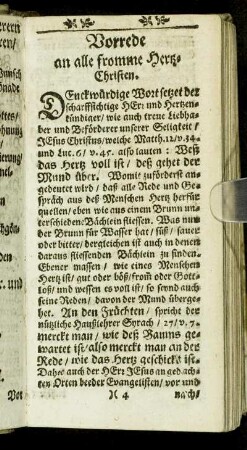 Vorrede
an alle fromme Hertz-
Christen.
DEnckwürdige Wort setzet der
scharffsichtige HErr und Hertzen-
kündiger / wie auch treue Liebha-
ber und Beförderer unserer Seligkeit /
JEsus Christus / welche Matth. 12 / v. 34.
und Luc. 6 / v. 45. also lauten : Weß
das Hertz voll ist / deß gehet der
Mund über. Womit zuförderst an-
gedeutet wird / daß alle Rede und Ge-
spräch aus deß Menschen Hertz herfür
quellen / eben wie aus einem Brunn un-
terschiedene Bächlein fliessen. Was nun
der Brunn für Wasser hat / süß / sauer
oder bitter / dergleichen ist auch in denen
daraus fliessenden Bächlein zu finden.
Ebener massen / wie eines Menschen
Hertz ist / gut oder böß / fromm oder Gott-
loß / und wessen es voll ist / so seynd auch
seine Reden / davon der Mund überge-
het. An den Früchten / spricht der
nützliche Haußlehrer Syrach / 27 / v. 7.
merckt man / wie deß Baums ge-
wartet ist / also merckt man an der
Rede / wie das Hertz geschickt ist.
Daher auch der HErr JEsus an gedach-
ten Orten beeder Evangelisten / vor und
)( 4 nach-